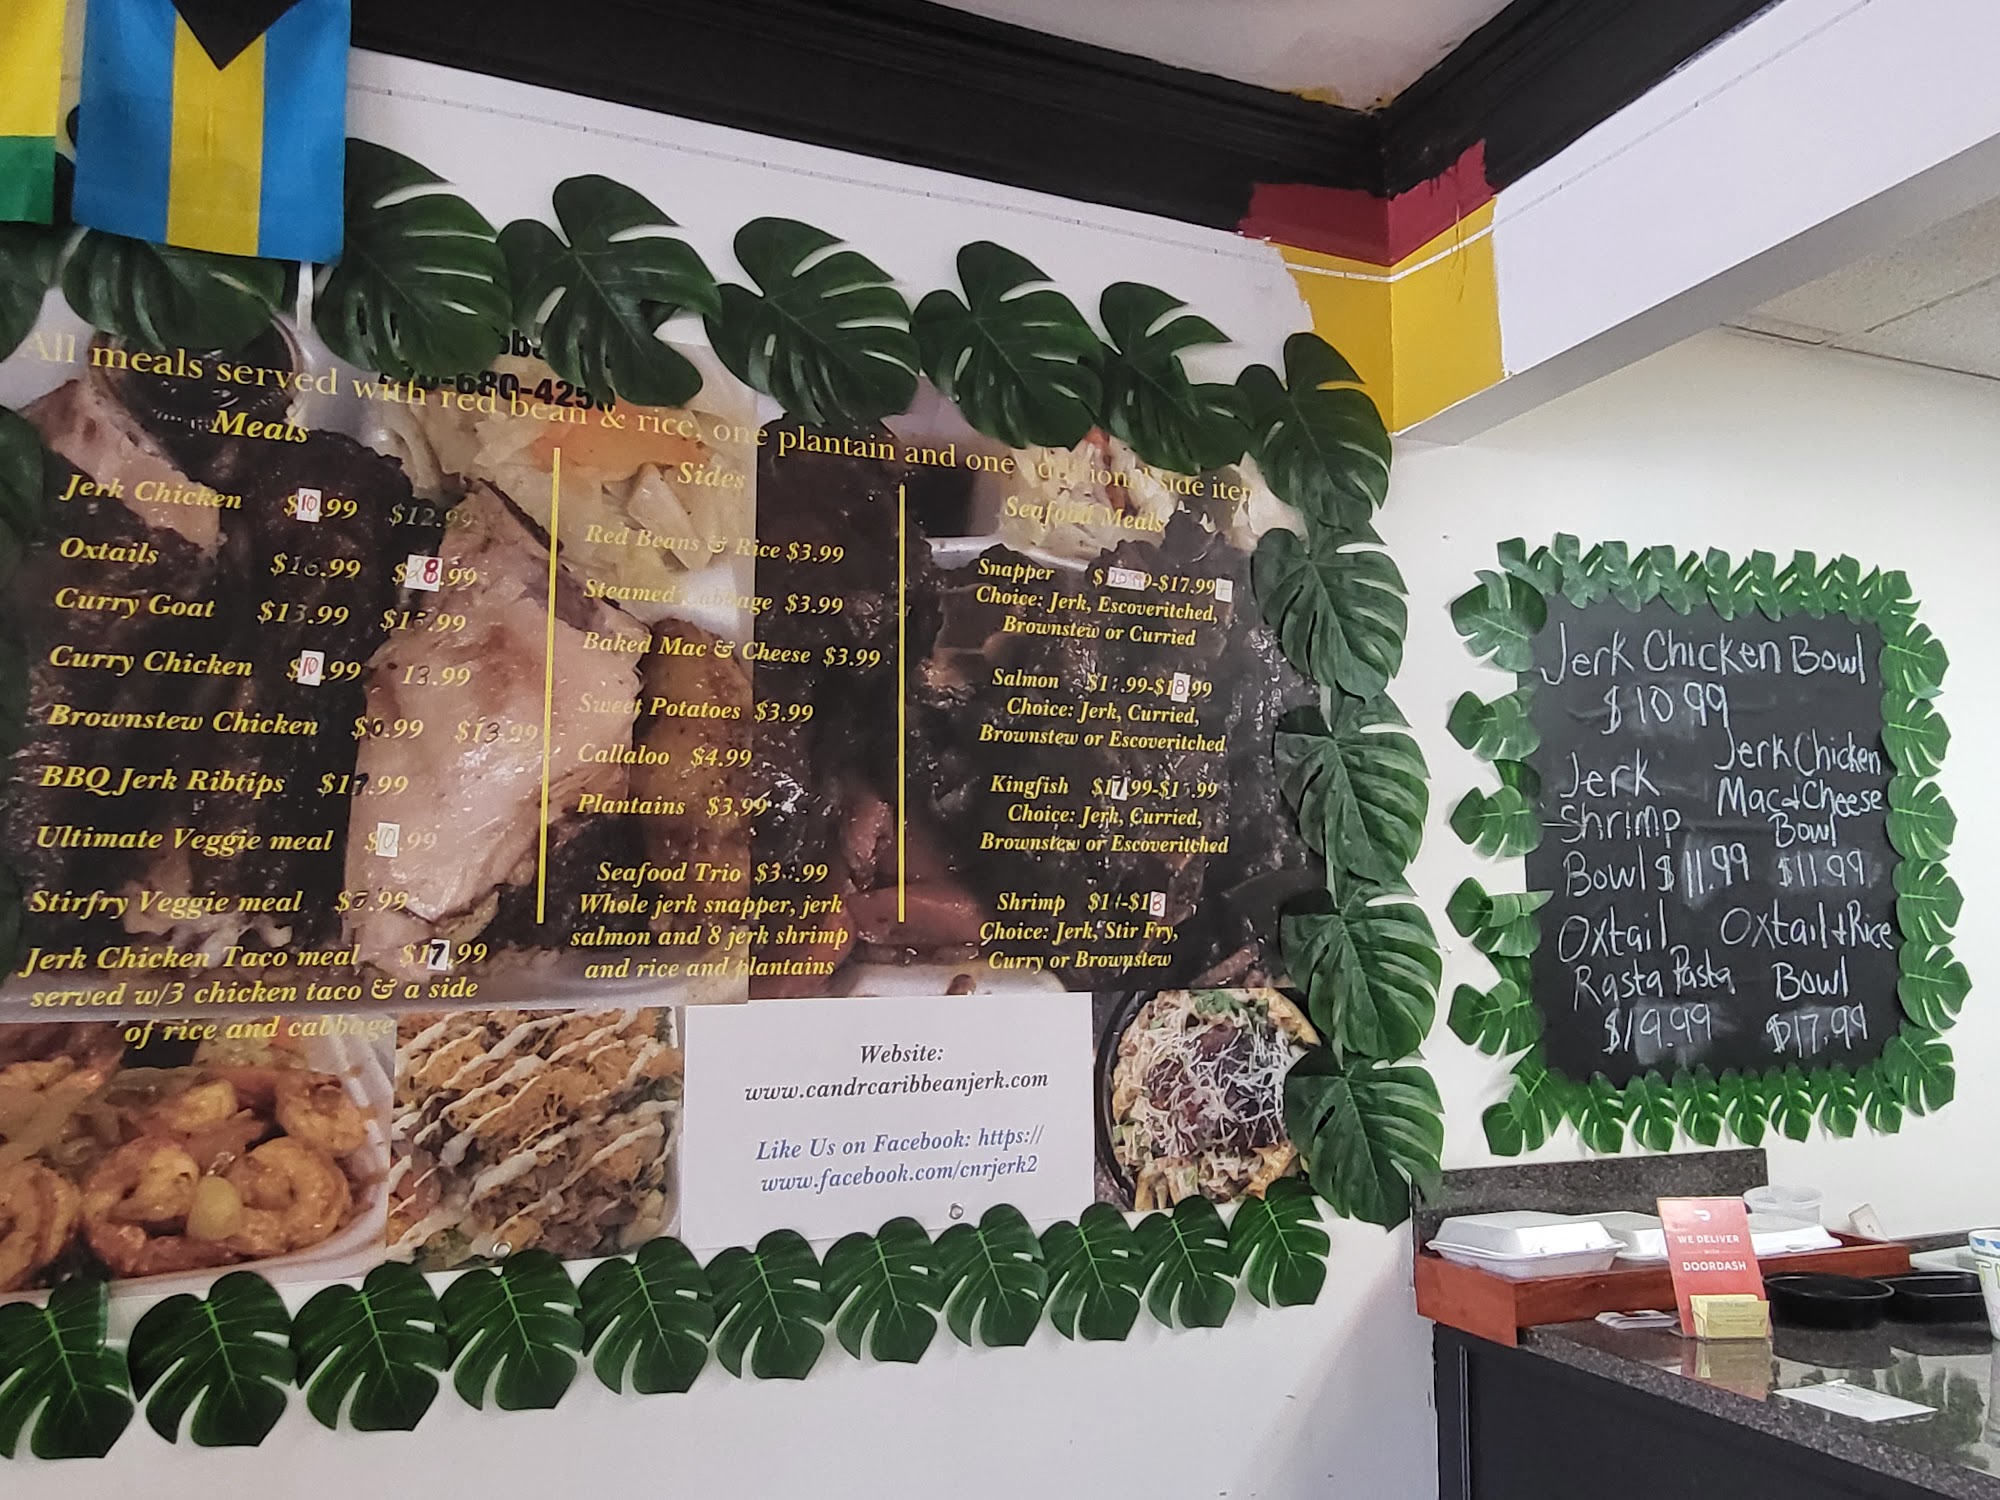 All meals served with red bean & rice, one plantain and one side item
680-425
Meals
Jerk Chicken $10.99 $12.99
Oxtails $16.99 $28.99
Curry Goat $13.99
Curry Chicken $10.99 13.99
Brownstew Chicken $13.99
BBQ Jerk Ribtips
Ultimate Veggie meal $10.99
Stirfry Veggie meal
Jerk Chicken Taco meal $17.99
served w/3 chicken taco & a side
of rice and cabbage
Sides
Red Beans & Rice $3.99
Steamed Cabbage $3.99
Baked Mac & Cheese $3.99
Sweet Potatoes $3.99
Callaloo $4.99
Plantains $3.99
Seafood Trio
Whole jerk snapper, jerk
salmon and 8 jerk shrimp
and rice and plantains
Seafood Meals
Snapper -$17.99+
Choice: Jerk, Escoveritched,
Brownstew or Curried
Salmon -$18.99
Choice: Jerk, Curried,
Brownstew or Escoveritched
Kingfish $17.99
Choice: Jerk, Curried,
Brownstew or Escoveritched
Shrimp -$18
Choice: Jerk, Stir Fry,
Curry or Brownstew
Website:
www.candrcaribbeanjerk.com
Like Us on Facebook: https://
www.facebook.com/cnrjerk2
Jerk Chicken Bowl
$10.99
Jerk
Shrimp
Bowl $11.99
Jerk Chicken
Mac & Cheese
Bowl
$11.99
Oxtail
Rasta Pasta
$19.99
Oxtail & Rice
Bowl
$17.99
WE DELIVER
WITH
DOORDASH